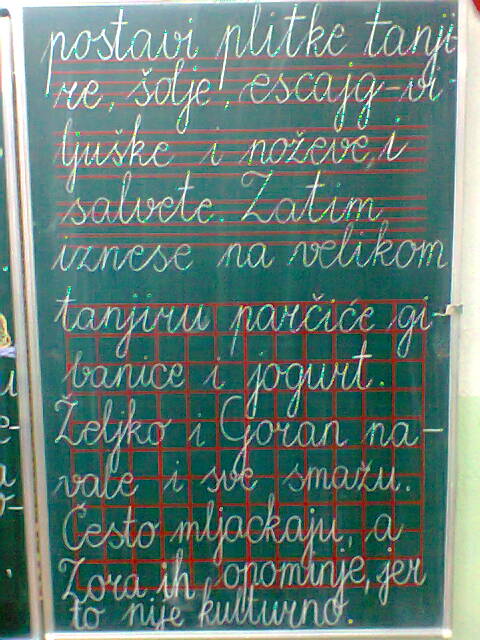 postavi plitke tanji-
re, šolje, escajg-vi
ljuške i noževe, i
salvete. Zatim
iznese na velikom
tanjiru parčiće gi-
banice i jogurt.
Željko i Goran na-
vale i sve smažu.
Često mljackaju, a
Zora ih opominje, jer
to nije kulturno.